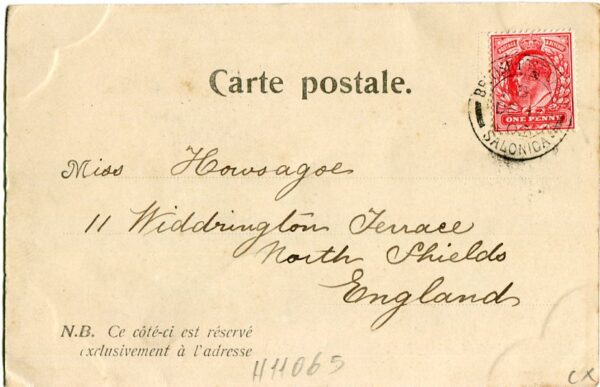 POSTAGE & REVENUE
ONE PENNY
SALONICA
Carte postale.
Miss Howsagoe
11 Widdrington Terrace
North Shields
England
N.B. Ce côté-ci est réservé
exclusivement à l'adresse
H11065
CX